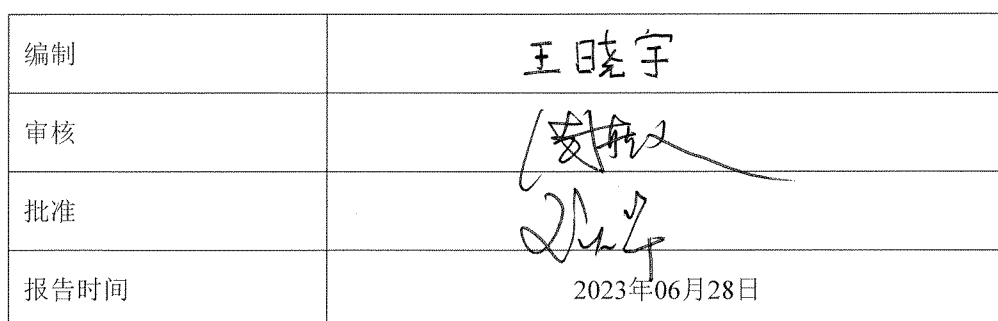 编制 王晓宇
审核
批准
报告时间 2023年06月28日